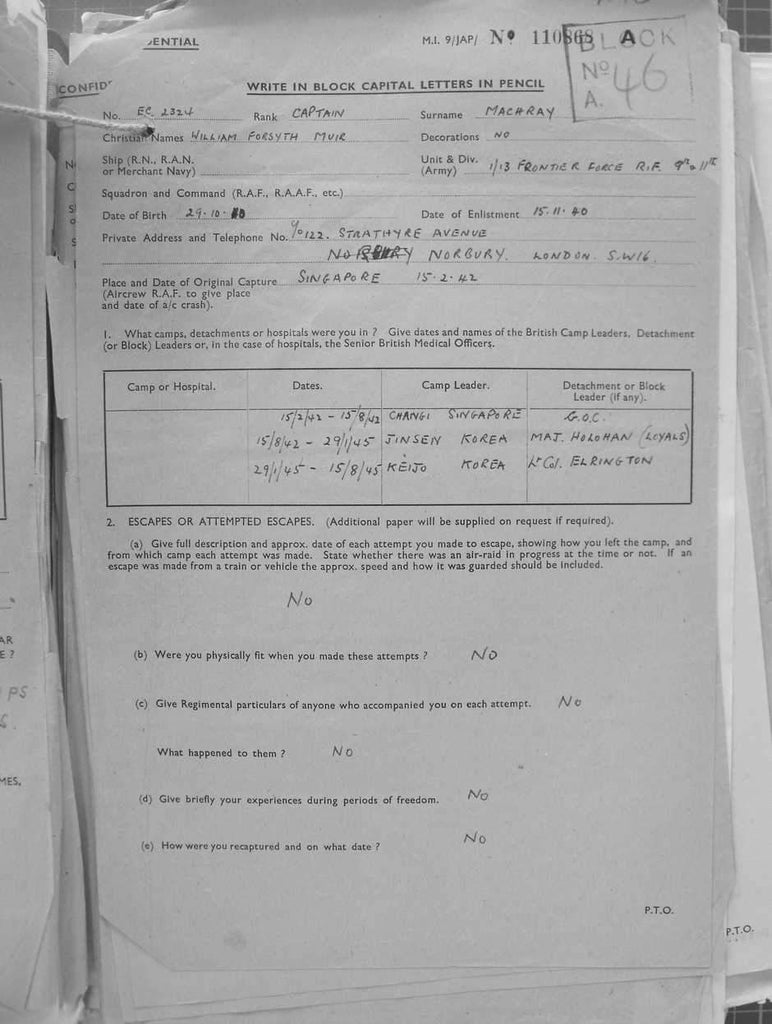 ENTIAL
M.I. 9/JAP/ Nº 110868
BLACK
Nº 46
A.
CONFID
WRITE IN BLOCK CAPITAL LETTERS IN PENCIL
No. EC. 2324 Rank CAPTAIN Surname MACHRAY
Christian Names WILLIAM FORSYTH MUIR Decorations NO
Ship (R.N., R.A.N. or Merchant Navy)
Unit & Div. (Army) 1/13 FRONTIER FORCE RIF. 9th & 11th
Squadron and Command (R.A.F., R.A.A.F., etc.)
Date of Birth 29.10. Date of Enlistment 15.11.40
Private Address and Telephone No. c/o 122. STRATHYRE AVENUE
NORBURY. LONDON. S.W16.
Place and Date of Original Capture SINGAPORE 15.2.42
(Aircrew R.A.F. to give place
and date of a/c crash).
1. What camps, detachments or hospitals were you in ? Give dates and names of the British Camp Leaders, Detachment
(or Block) Leaders or, in the case of hospitals, the Senior British Medical Officers.
Camp or Hospital. Dates. Camp Leader. Detachment or Block Leader (if any).
15/2/42 - 15/8/42 CHANGI SINGAPORE G.O.C.
15/8/42 - 29/1/45 JINSEN KOREA MAJ. HOLOHAN (LOYALS)
29/1/45 - 15/8/45 KEIJO KOREA Lt Col. ELRINGTON
2. ESCAPES OR ATTEMPTED ESCAPES. (Additional paper will be supplied on request if required).
(a) Give full description and approx. date of each attempt you made to escape, showing how you left the camp, and
from which camp each attempt was made. State whether there was an air-raid in progress at the time or not. If an
escape was made from a train or vehicle the approx. speed and how it was guarded should be included.
No
(b) Were you physically fit when you made these attempts ? No
(c) Give Regimental particulars of anyone who accompanied you on each attempt. No
What happened to them ? No
(d) Give briefly your experiences during periods of freedom. No
(e) How were you recaptured and on what date ? No
P.T.O.
P.T.O.
AR
E ?
PS
MES,